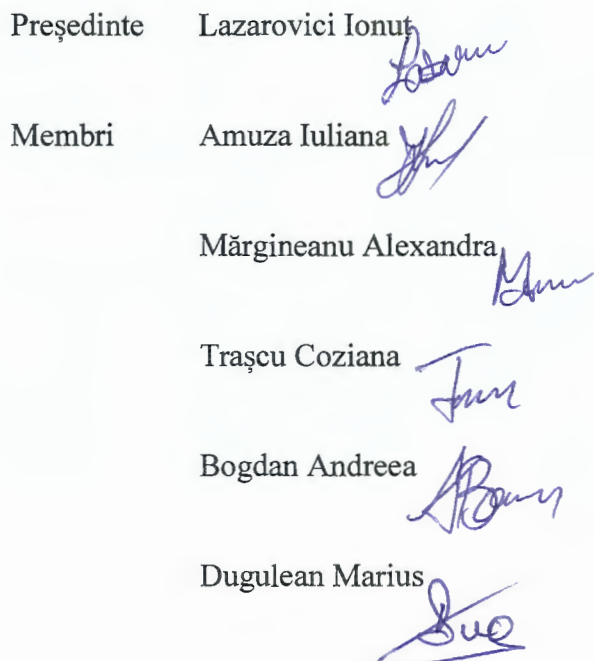 Președinte Lazarovici Ionuț
Membri Amuza Iuliana
Mărgineanu Alexandra
Trașcu Coziana
Bogdan Andreea
Dugulean Marius